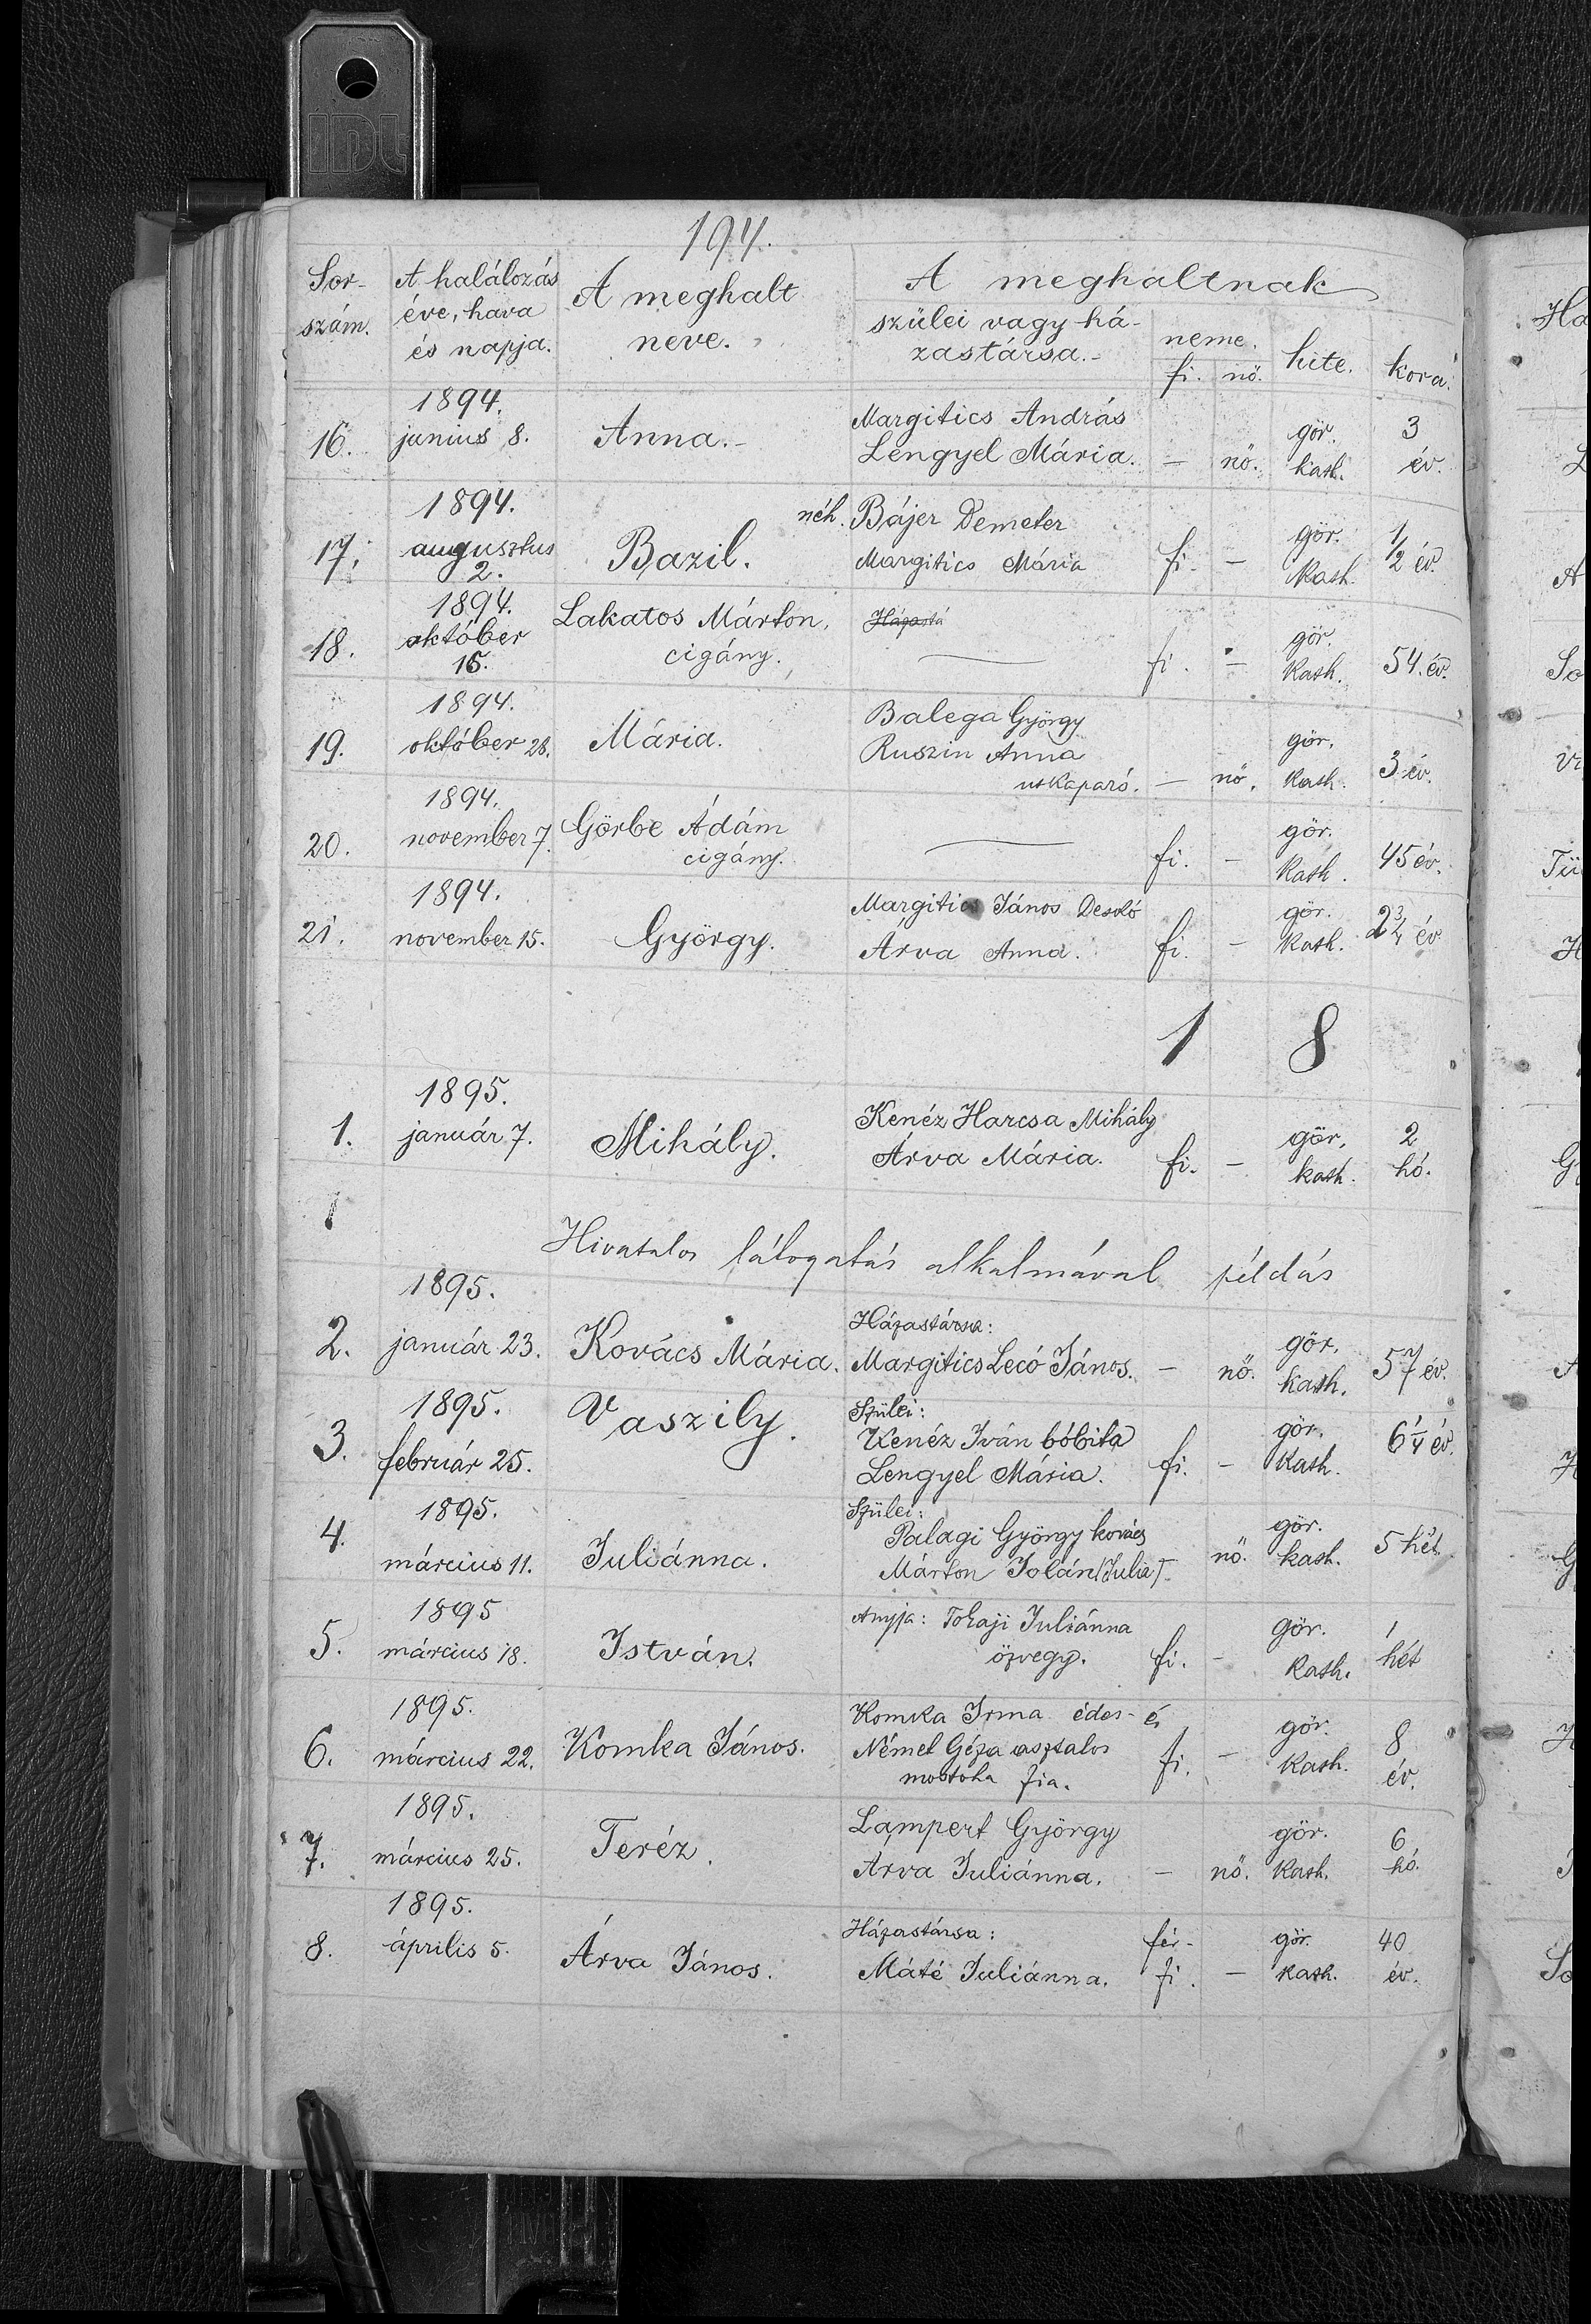 IDL
194.
Sor-szám.
A halálozás éve, hava és napja.
A meghalt neve.
A meghaltnak
szülei vagy há-zastársa.-
neme.
fi. nö.
hite.
kora.
1894.
16. junius 8. Anna.- Margitics András
Lengyel Mária. - nö. gör. kath. 3 év.
1894.
17. augusztus 2. Bazil. néh. Bájer Demeter
Margitics Mária fi. - gör. kath. 1/2 év.
1894.
18. október 15. Lakatos Márton, cigány. Házastá
fi. - gör. kath. 54. év.
1894.
19. október 28. Mária. Balega György
Ruszin Anna
utkaparó. - nö. gör. kath. 3 év.
1894.
20. november 7. Görbe Ádám
cigány. fi. - gör. kath. 45 év.
1894.
21. november 15. György. Margitics János Deskó
Árva Anna. fi. - gör. kath. 2 3/4 év
1 8
1895.
1. január 7. Mihály. Kenéz Harcsa Mihály
Árva Mária. fi. - gör. kath. 2 hó.
1
Hivatalos látogatás alkalmával
1895.
2. január 23. Kovács Mária. Házastársa:
Margitics Lecó János. - nö. gör. kath. 57 év.
1895.
3. február 25. Vaszily. Szülei:
Kenéz Iván bóbita
Lengyel Mária. fi. - gör. kath. 6 1/4 év.
1895.
4. március 11. Juliánna. Szülei:
Palagi György kovács
Márton Jolán (Julia) - nö. gör. kath. 5 hét
1895
5. március 18. István. Anyja: Tokaji Juliánna
özvegy. fi. - gör. kath. 1 hét
1895.
6. március 22. Komka János. Komka Irma édes- és
Német Géza asztalos
mostoha fia. fi. - gör. kath. 8 év.
1895.
7. március 25. Teréz. Lampert György
Árva Juliánna. - nö. gör. kath. 6 hó.
1895.
8. április 5. Árva János. Házastársa:
Máté Juliánna. fér-fi. - gör. kath. 40 év.